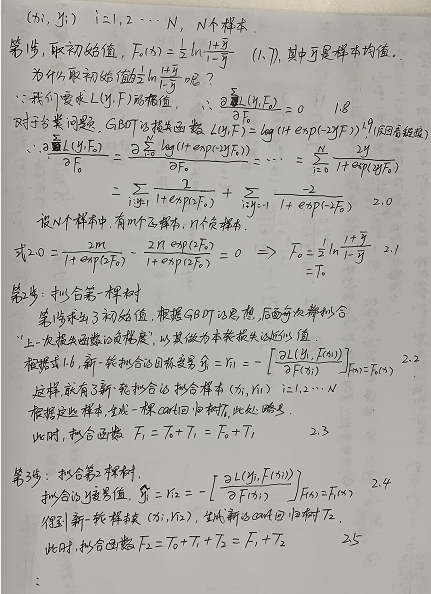 (xi, yi) i=1,2 ··· N, N个样本.
第1步, 取初始值, F₀(x) = 1/2 ln (1+ȳ)/(1-ȳ) (1.7), 其中ȳ是样本均值.
为什么取初始值为 1/2 ln (1+ȳ)/(1-ȳ) 呢?
∵我们要求L(y,F)的极值, ∴ ∂ΣL(y,F₀)/∂F₀ = 0 1.8
对于分类问题, GBDT的损失函数 L(y,F) = log(1+exp(-2yF)) 1.9
∴ ∂ΣL(y,F₀)/∂F₀ = ∂Σ_{i=0}^{N} log(1+exp(-2yF₀))/∂F₀ = ··· = Σ_{i=0}^{N} 2y/(1+exp(2yF₀))
= Σ_{i:yi=1} 2/(1+exp(2F₀)) + Σ_{i:yi=-1} -2/(1+exp(-2F₀)) 2.0
设N个样本中, 有m个正样本, n个负样本.
式2.0 = 2m/(1+exp(2F₀)) - 2n exp(2F₀)/(1+exp(2F₀)) = 0 => F₀ = 1/2 ln (1+ȳ)/(1-ȳ) 2.1
= T₀
第2步: 拟合第一棵树
第1步求出了初始值, 根据GBDT的思想, 后面每次都拟合
"上一次损失函数的负梯度", 以其做为本轮损失的近似值.
根据式1.6, 新一轮拟合的目标变易 ỹi = ri1 = -[∂L(yi,F(xi))/∂F(xi)]F(x)=F₀(x) 2.2
这样就有了新一轮拟合的拟合样本 (xi, ri1) i=1,2···N
根据这些样本, 生成一棵cart回归树T₁, 此处略去.
此时, 拟合函数 F₁ = T₀+T₁ = F₀+T₁ 2.3
第3步: 拟合第2棵树.
拟合的y变易值, ỹi = ri2 = -[∂L(yi,F(xi))/∂F(xi)]F(x)=F₁(x) 2.4
得到新一轮样本集 (xi, ri2), 生成新的cart回归树T₂.
此时, 拟合函数 F₂ = T₀+T₁+T₂ = F₁+T₂ 2.5
: